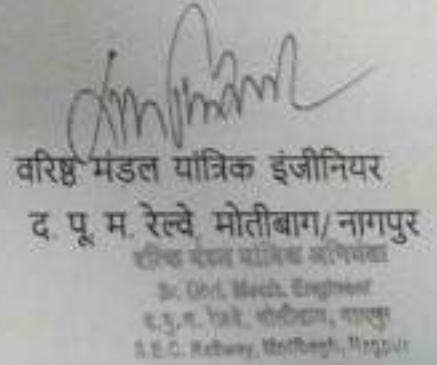 वरिष्ठ मंडल यांत्रिक इंजीनियर
द. पू. म. रेल्वे, मोतीबाग/नागपुर
वरिष्ठ मंडल यांत्रिक अभियंता
Sr. Divl. Mech. Engineer
द.पू.म. रेल्वे, मोतीबाग, नागपुर
S.E.C. Railway, Motibagh, Nagpur